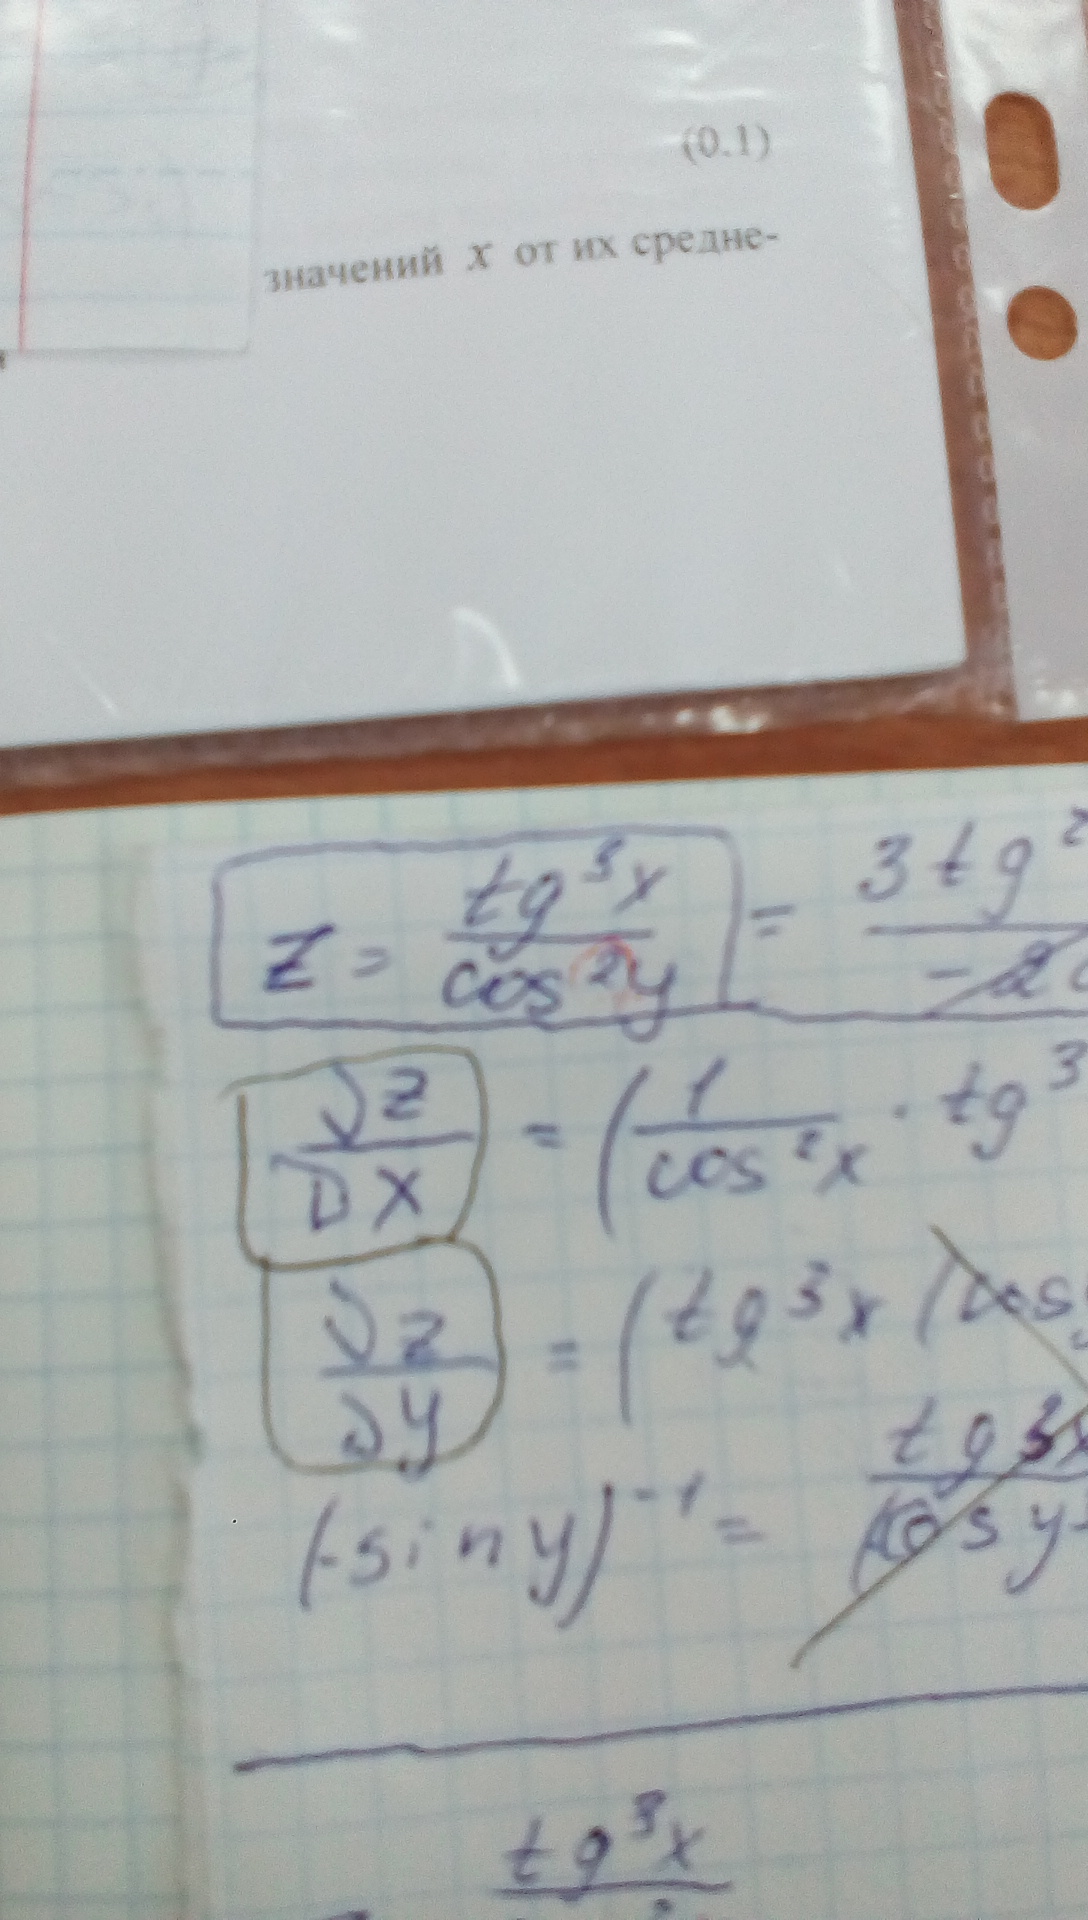 (0.1)
значений x от их средне-
z = tg³x / cos²y = 3tg²
∂z/∂x = (1/cos²x · tg³
∂z/∂y = (tg³x (cos
tg3x
(-sin y)⁻¹ = (cos y
tg³x